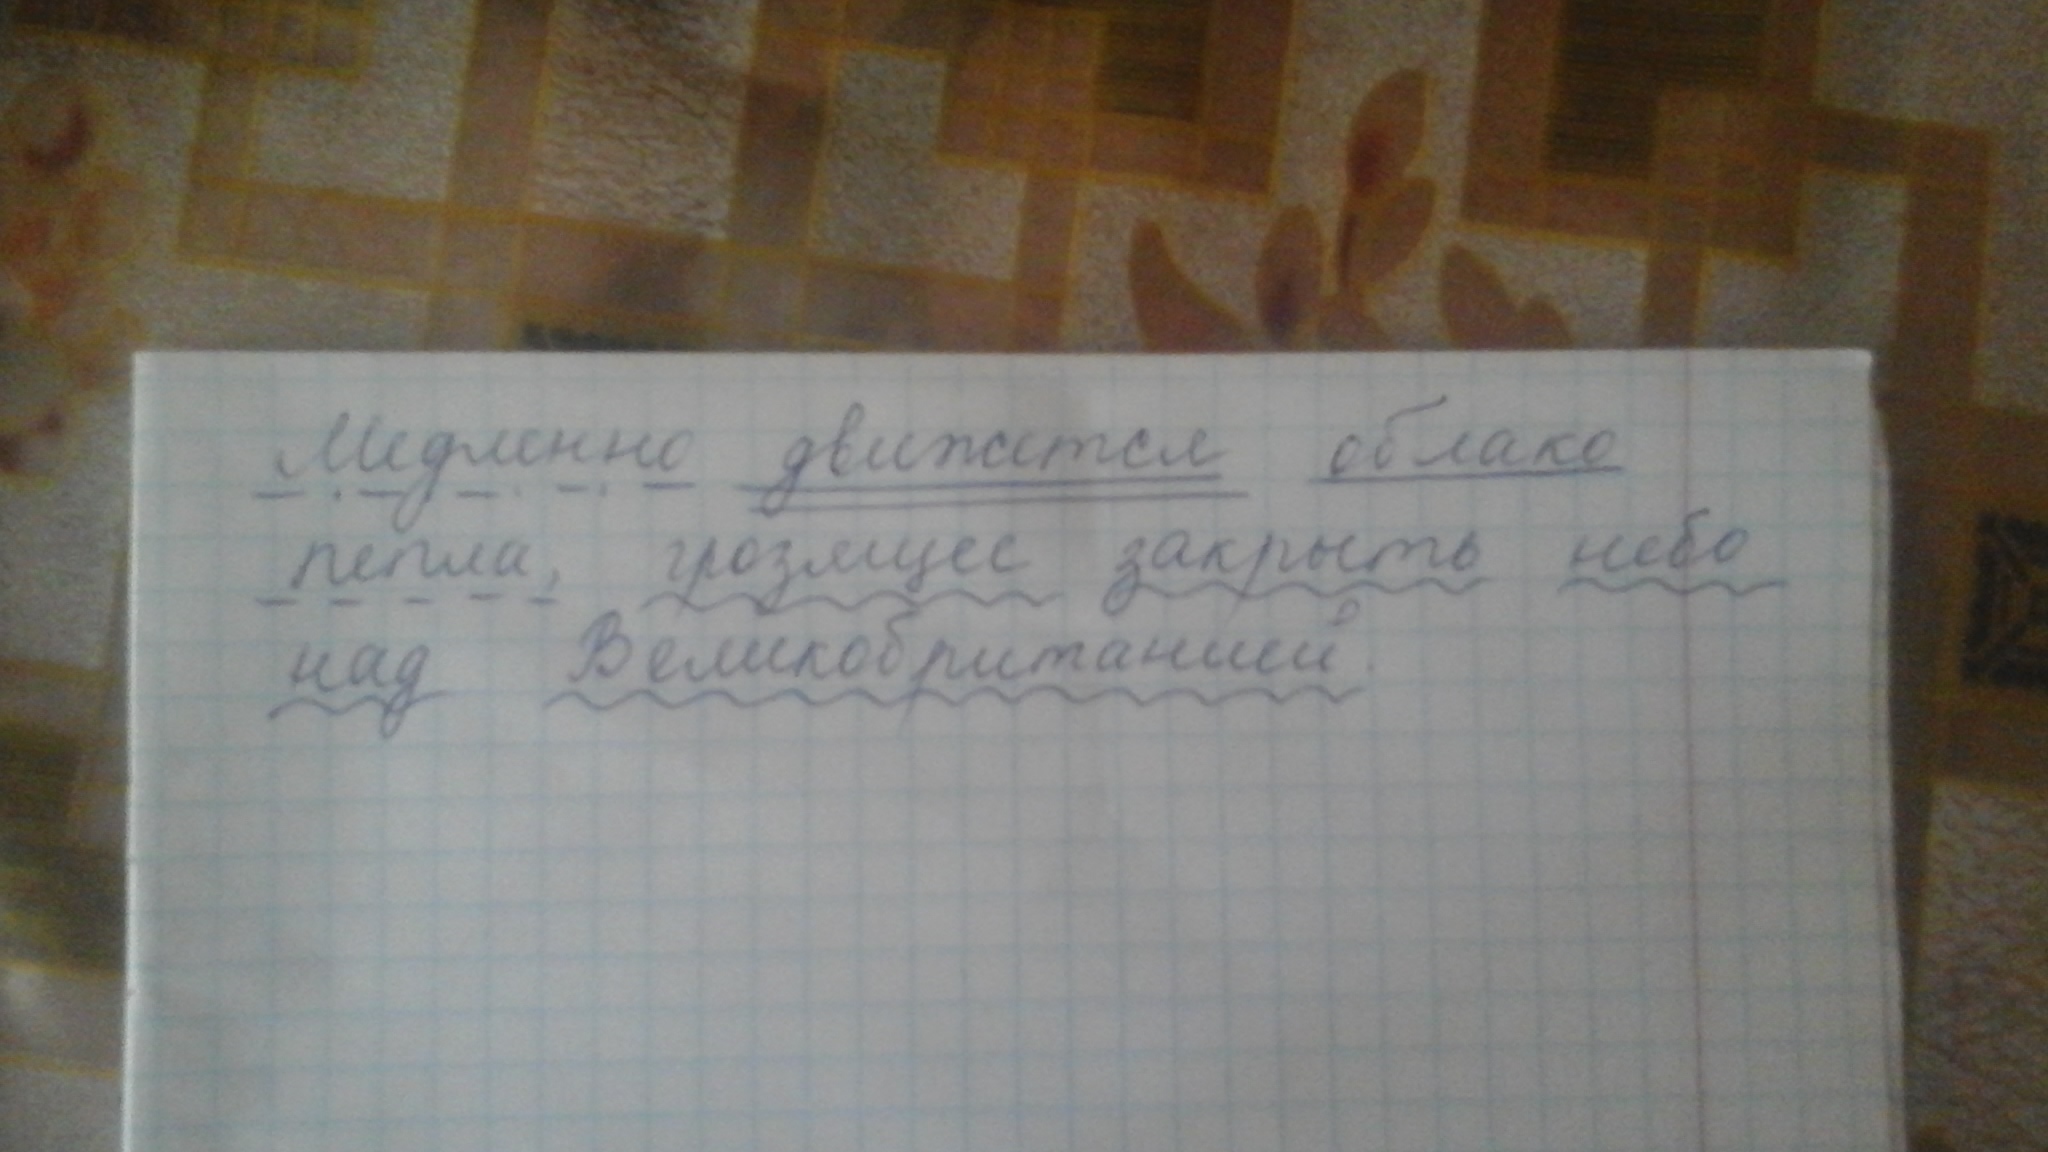 Медленно движется облако
пепла, грозящее закрыть небо
над Великобританией.